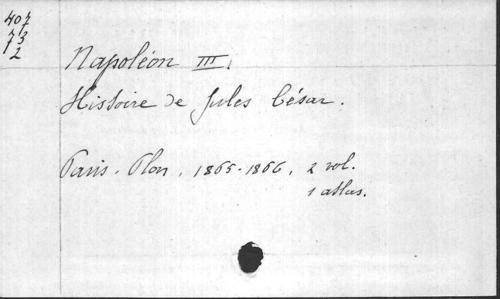 407
73
2
Napoléon III.
Histoire de Jules César.
Paris. Plon. 1865-1866. 2 vol.
1 atlas.